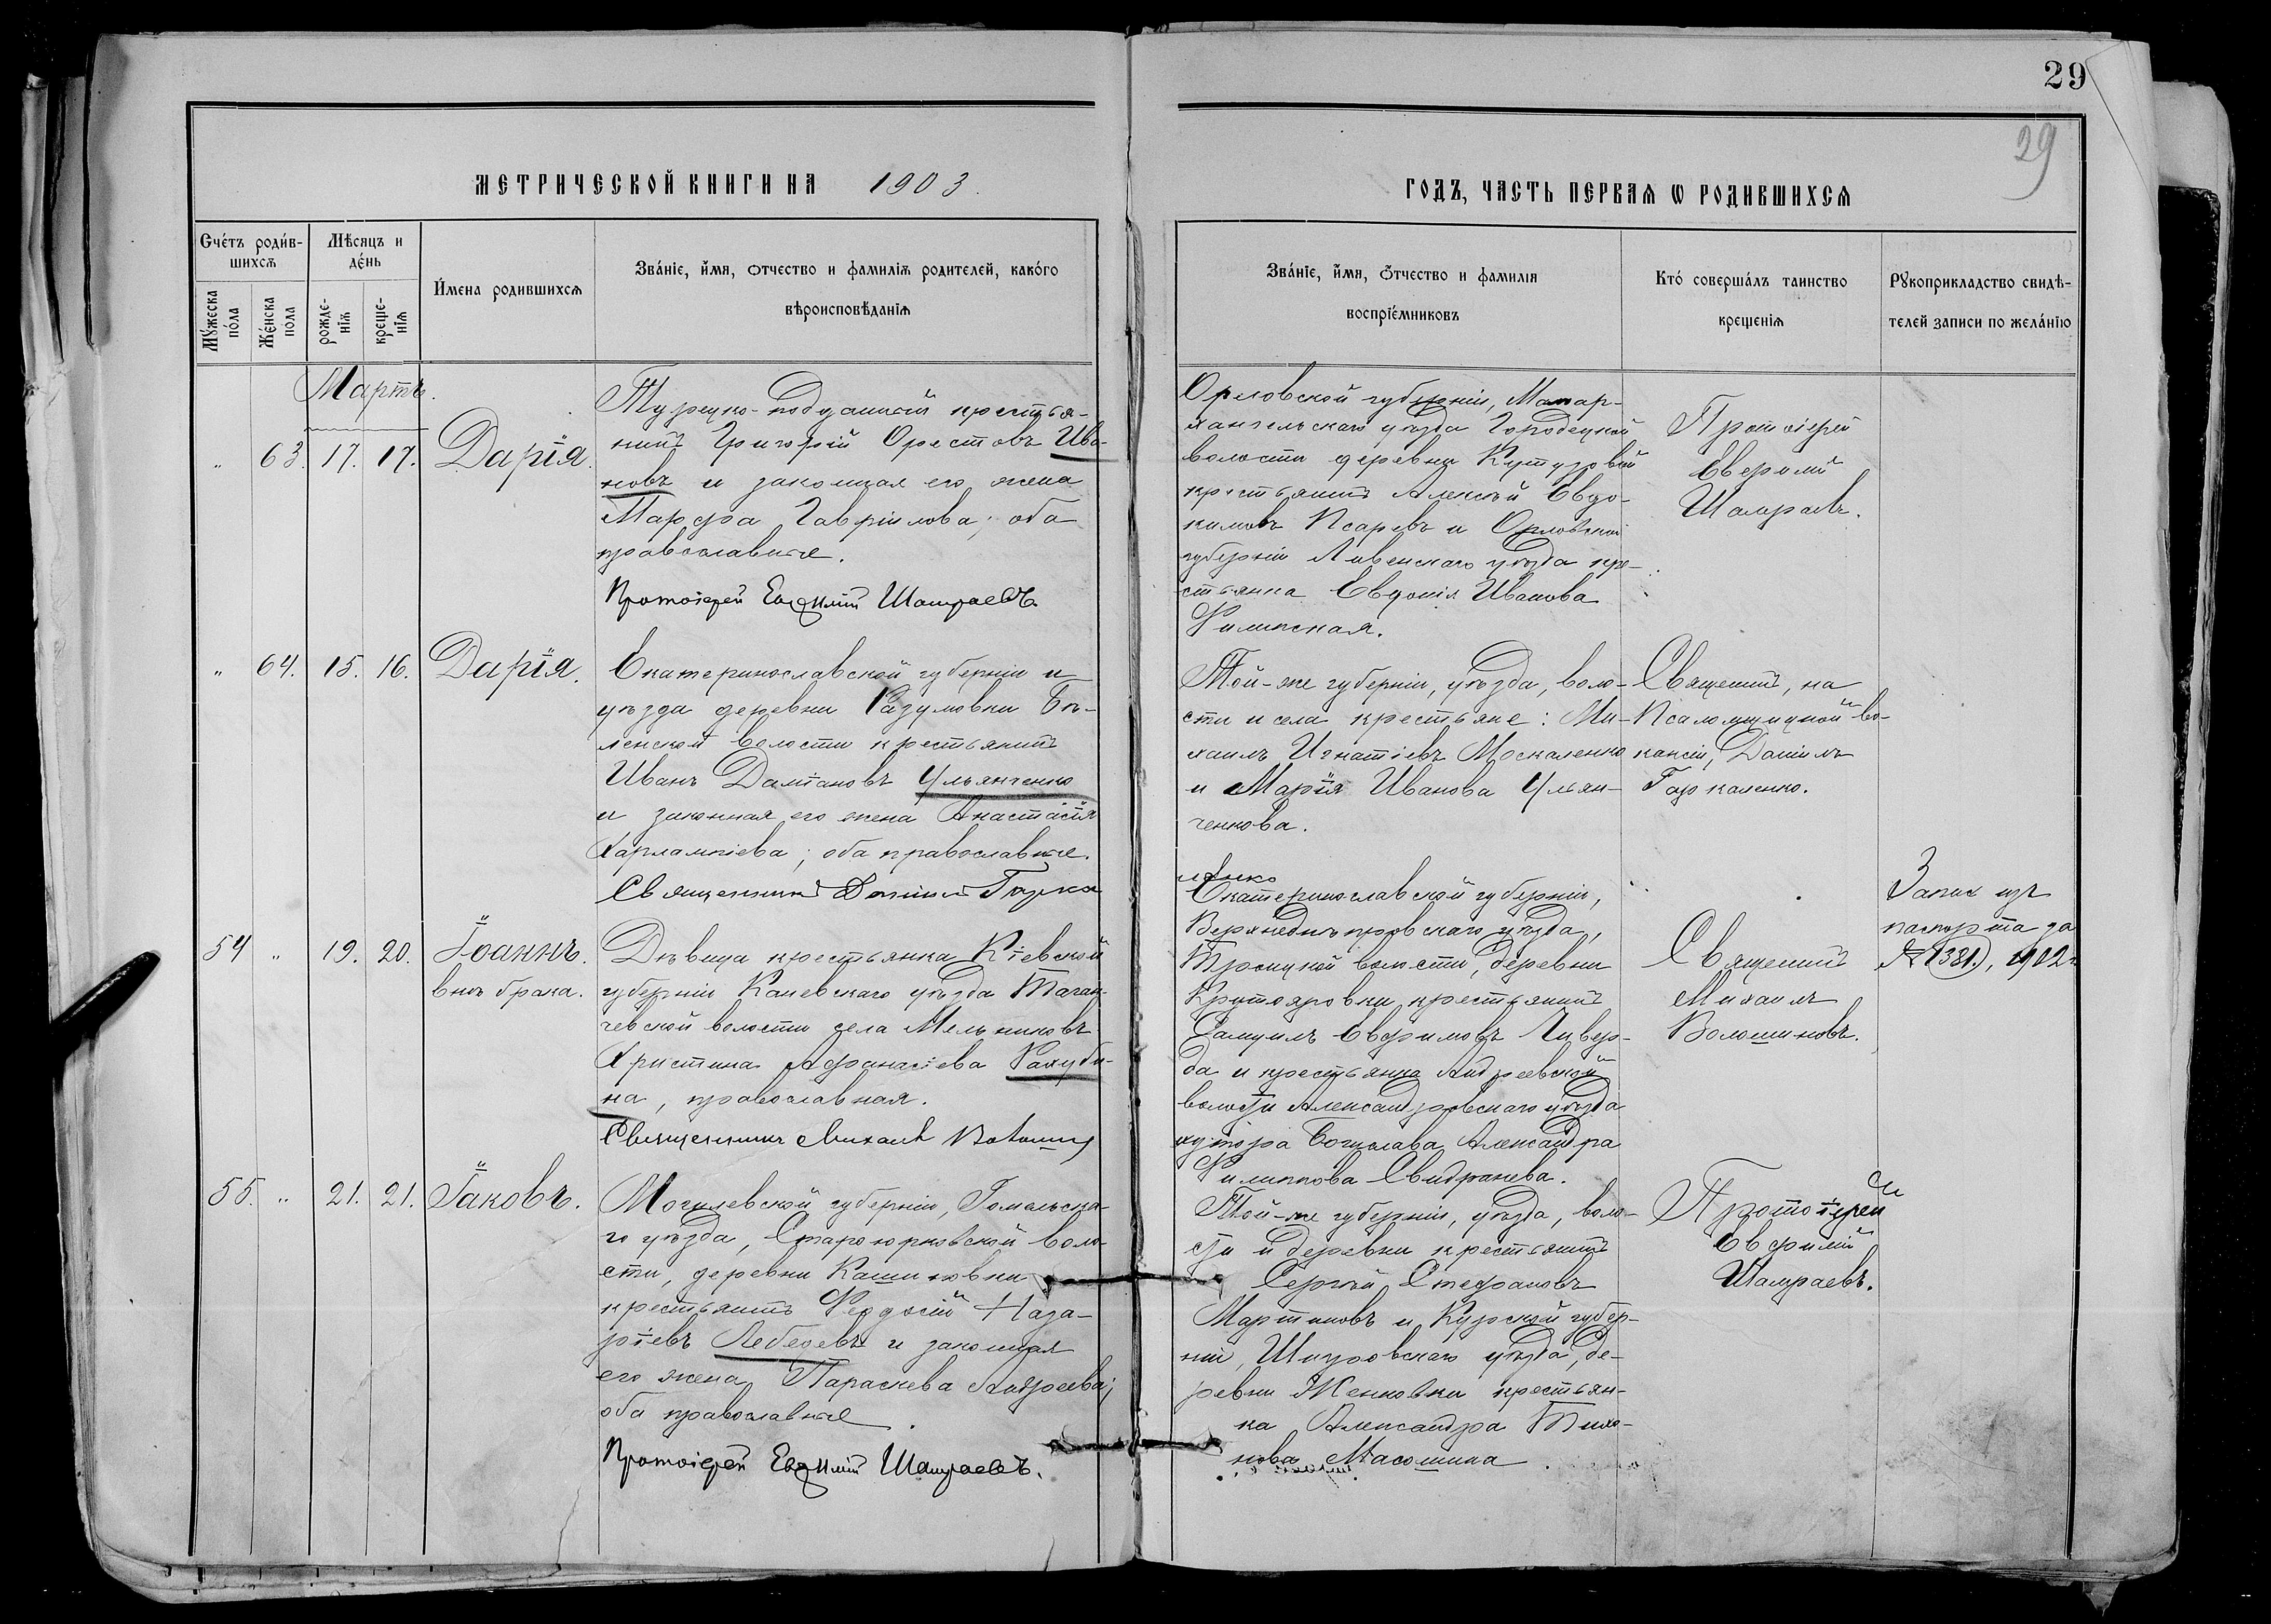 29
29
МЕТРИЧЕСКОЙ КНИГИ НА 1903.
ГОДЪ, ЧАСТЬ ПЕРВАѦ Ѡ РОДИВШИХСѦ
Счётъ роди́в-
шихсѧ
Мѣсяцъ и
де́нь
Му́жеска
по́ла
Же́нска
по́ла
рожде-
нїѧ
креще-
нїѧ
И́мена родившихсѧ
Зва́нїе, и́мя, отчество и фамилїѧ родителей, како́го
вѣроисповѣданїѧ
Зва́нїе, и́мя, о́тчество и фамилїя
воспрїе́мниковъ
Кто́ соверша́лъ таинство
крещенїѧ
Рꙋкоприкладство свидѣ-
телей записи по жела́нїю
Мартъ.
" 63. 17. 17. Дарія.
Турецко-подданный крестья-
нинъ Григорій Орестовъ Ива-
новъ и законная его жена
Марфа Гавріилова; оба
православные.
Протоіерей Евфимій Шамраевъ.
Орловской губерніи, Малар-
хангельскаго уѣзда Городецкой
волости деревни Кутузовой
крестьянинъ Алексѣй Евдо-
кимовъ Псаревъ и Орловской
губерніи Ливенскаго уѣзда кре-
стьянка Евдокія Иванова
Филипская.
Протоіерей
Евфимій
Шамраевъ.
" 64. 15. 16. Дарія.
Екатеринославской губерніи и
уѣзда деревни Разумовки Бѣ-
ленской волости крестьянинъ
Иванъ Даміановъ Ульянченко
и законная его жена Анастасія
Харлампіева; оба православные.
Священникъ Даніилъ Гарка
ленко
Той-же губерніи, уѣзда, воло-
сти и села крестьяне: Ми-
хаилъ Игнатіевъ Москаленко
и Марія Иванова Ульян-
ченкова.
Священникъ, на
Псаломщицкой ва-
кансіи, Даніилъ
Гаркаленко.
54 " 19. 20. Іоаннъ.
внѣ брака.
Дѣвица крестьянка Кіевской
губерніи Каневскаго уѣзда Таган-
чевской волости села Мельниковъ
Христина Афанасіева Рахуби-
на, православная.
Священникъ Михаилъ Волошин
Екатеринославской губерніи,
Верхнеднѣпровскаго уѣзда,
Троицкой волости, деревни
Крутояровки крестьянинъ
Самуилъ Евфимовъ Ливер-
да и крестьянка Андреевской
волости Александровскаго уѣзда
хутора Богислава Александра
Филиппова Свидранева.
Священникъ
Михаилъ
Волошиновъ.
Запис изъ
паспорта за
№ 1381), 1902 г.
55. " 21. 21. Іаковъ.
Могилевской губерніи, Гомельска-
го уѣзда, Староюрковской воло-
сти, деревни Кашиловки
крестьянинъ Феодосій Наза-
ріевъ Лебедевъ и законная
его жена Параскева Андреева;
оба православные.
Протоіерей Евфимій Шамраевъ.
Той-же губерніи, уѣзда, воло-
сти и деревни крестьянинъ
Сергѣй Стефановъ
Мартиновъ и Курской губер-
ніи, Щигровскаго уѣзда, де-
ревни Женковки крестьян-
ка Александра Тихо-
нова Масошина
Протоіерей
Евфимій
Шамраевъ.